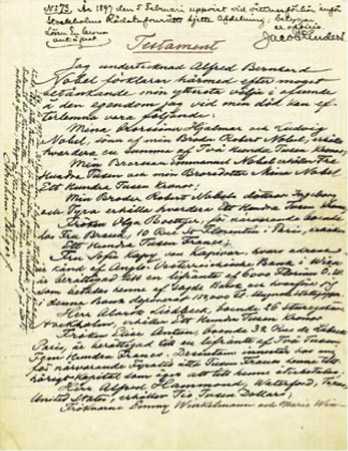 No 73. År 1897 den 5 Februari uppvist vid vittnesförhör inför
Stockholms Rådstufvurätt sjette Afdelning; betygar
Jacob
Testament
Jag undertecknad Alfred Bernhard
Nobel förklarar härmed efter moget
betänkande min yttersta vilja i afseende
å den egendom jag vid min död kan ef-
terlemna vara följande:
Mina Brorsöner Hjalmar och Ludvig
Nobel, söner af min Broder Robert Nobel, erhålla
hvardera en summa af Två Hundra Tusen Kronor;
Min Brorson Emmanuel Nobel erhåller Tre
Hundra Tusen och min Brorsdotter Mina Nobel
Ett Hundra Tusen Kronor;
Min Broder Robert Nobels döttrar Ingeborg
och Tyra erhålla hvardera Ett Hundra Tusen Kronor;
Fröken Olga Boettger, för närvarande boende
hos Fru Brand, 10 Rue St Florentin i Paris, erhåller
Ett Hundra Tusen Francs;
Fru Sofie Kapy von Kapivar, hvars adress
är känd af Anglo-Oesterreichische Bank i Wien
är berättigad till en lifränta af 6000 Florins Ö.W.
som betalas henne af sagde Bank och hvarför jag
i denna Bank deponerat 150,000 Fl. i Ungerska Statspapper.
Herr Alarik Liedbeck, boende 26 Sturegatan
Stockholm, erhåller Ett Hundra Tusen Kronor
Fröken Elise Antun, boende 32 Rue de Lubeck
Paris, är berättigad till en lifränta af Två Tusen
Fem Hundra Francs. Dessutom innestår hos mig
för närvarande Fyratio åtta Tusen Francs henne till-
hörigt kapital som
Herr Alfred Hammond, Waterford, Texas,
United States, erhåller Tio Tusen Dollars;
Fröknarna Emmy Winkelmann och Marie Win-